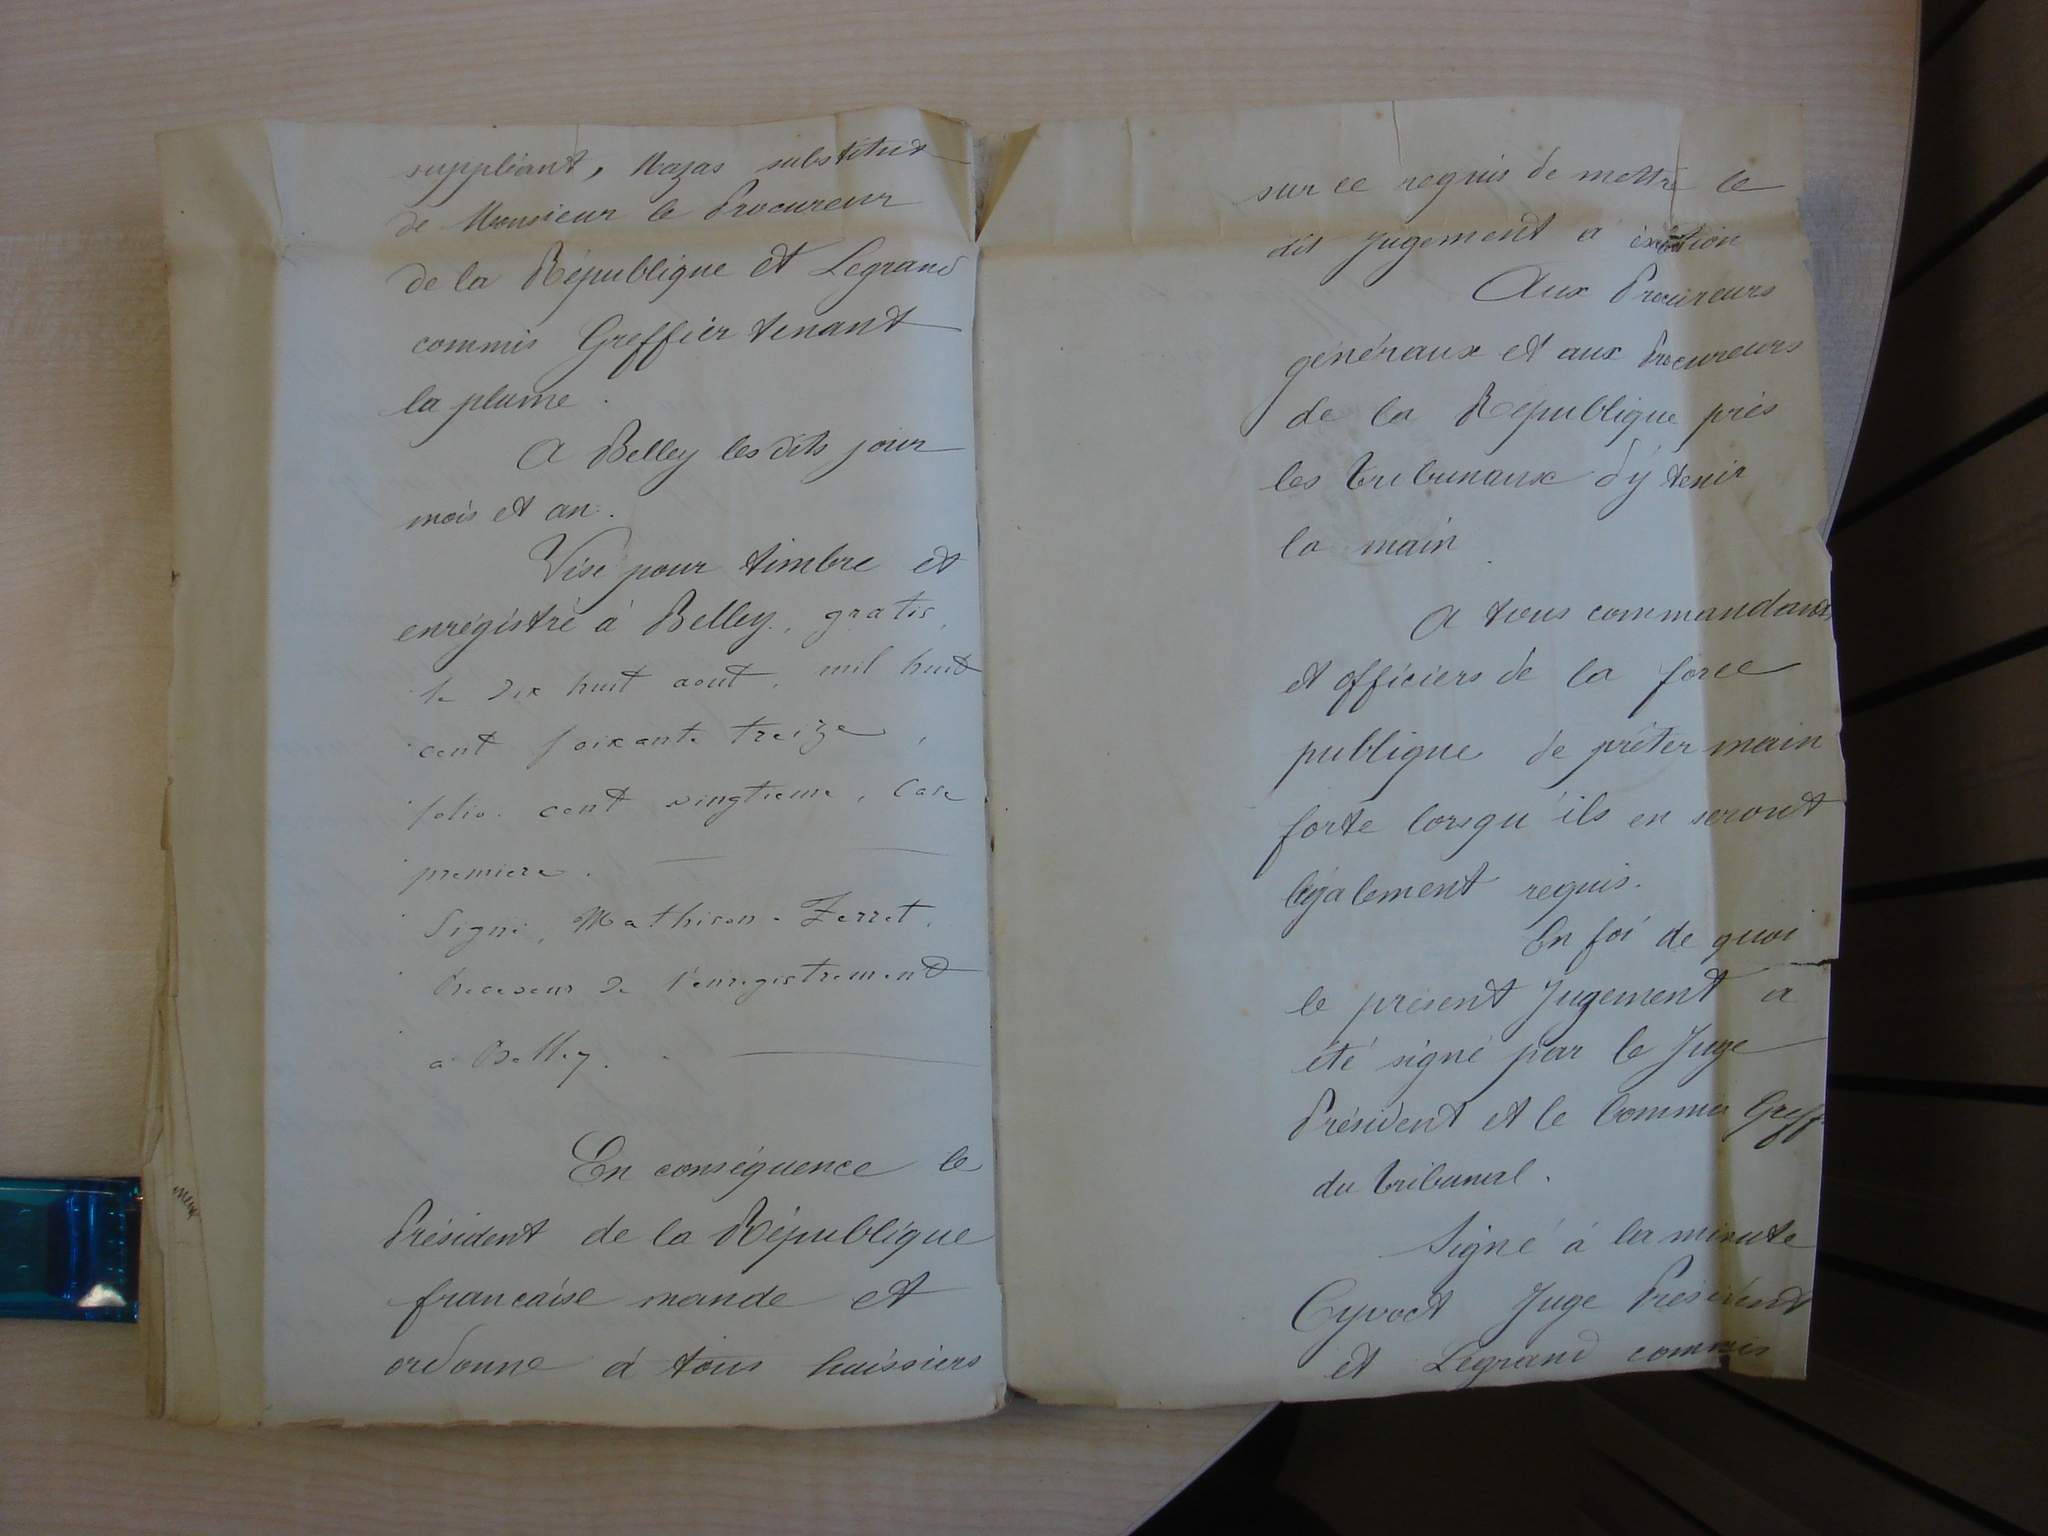 suppléant, Mazas substitut
de Monsieur le Procureur
de la République et Legrand
commis Greffier tenant
la plume.
A Belley les dits jour
mois et an.
Visé pour timbre et
enrégistré à Belley, gratis,
le dix huit aout, mil huit
cent soixante treize,
folio cent vingtieme, Case
premiere.
Signé, Mathison-Ferret,
Receveur de l'enregistrement
à Belley.
En conséquence le
Président de la République
francaise mande et
ordonne à tous huissiers
sur ce requis de mettre le
dit Jugement à
Aux Procureurs
généraux et aux Procureurs
de la République près
les tribunaux d'y tenir
la main
A tous commandants
et officiers de la force
publique de prêter main
forte lorsqu'ils en seront
légalement requis.
En foi de quoi
le présent Jugement a
été signé par le Juge
Président et le Commis Greff.
du tribunal.
Signé à la minute
Cyvoct Juge Président
et Legrand commis